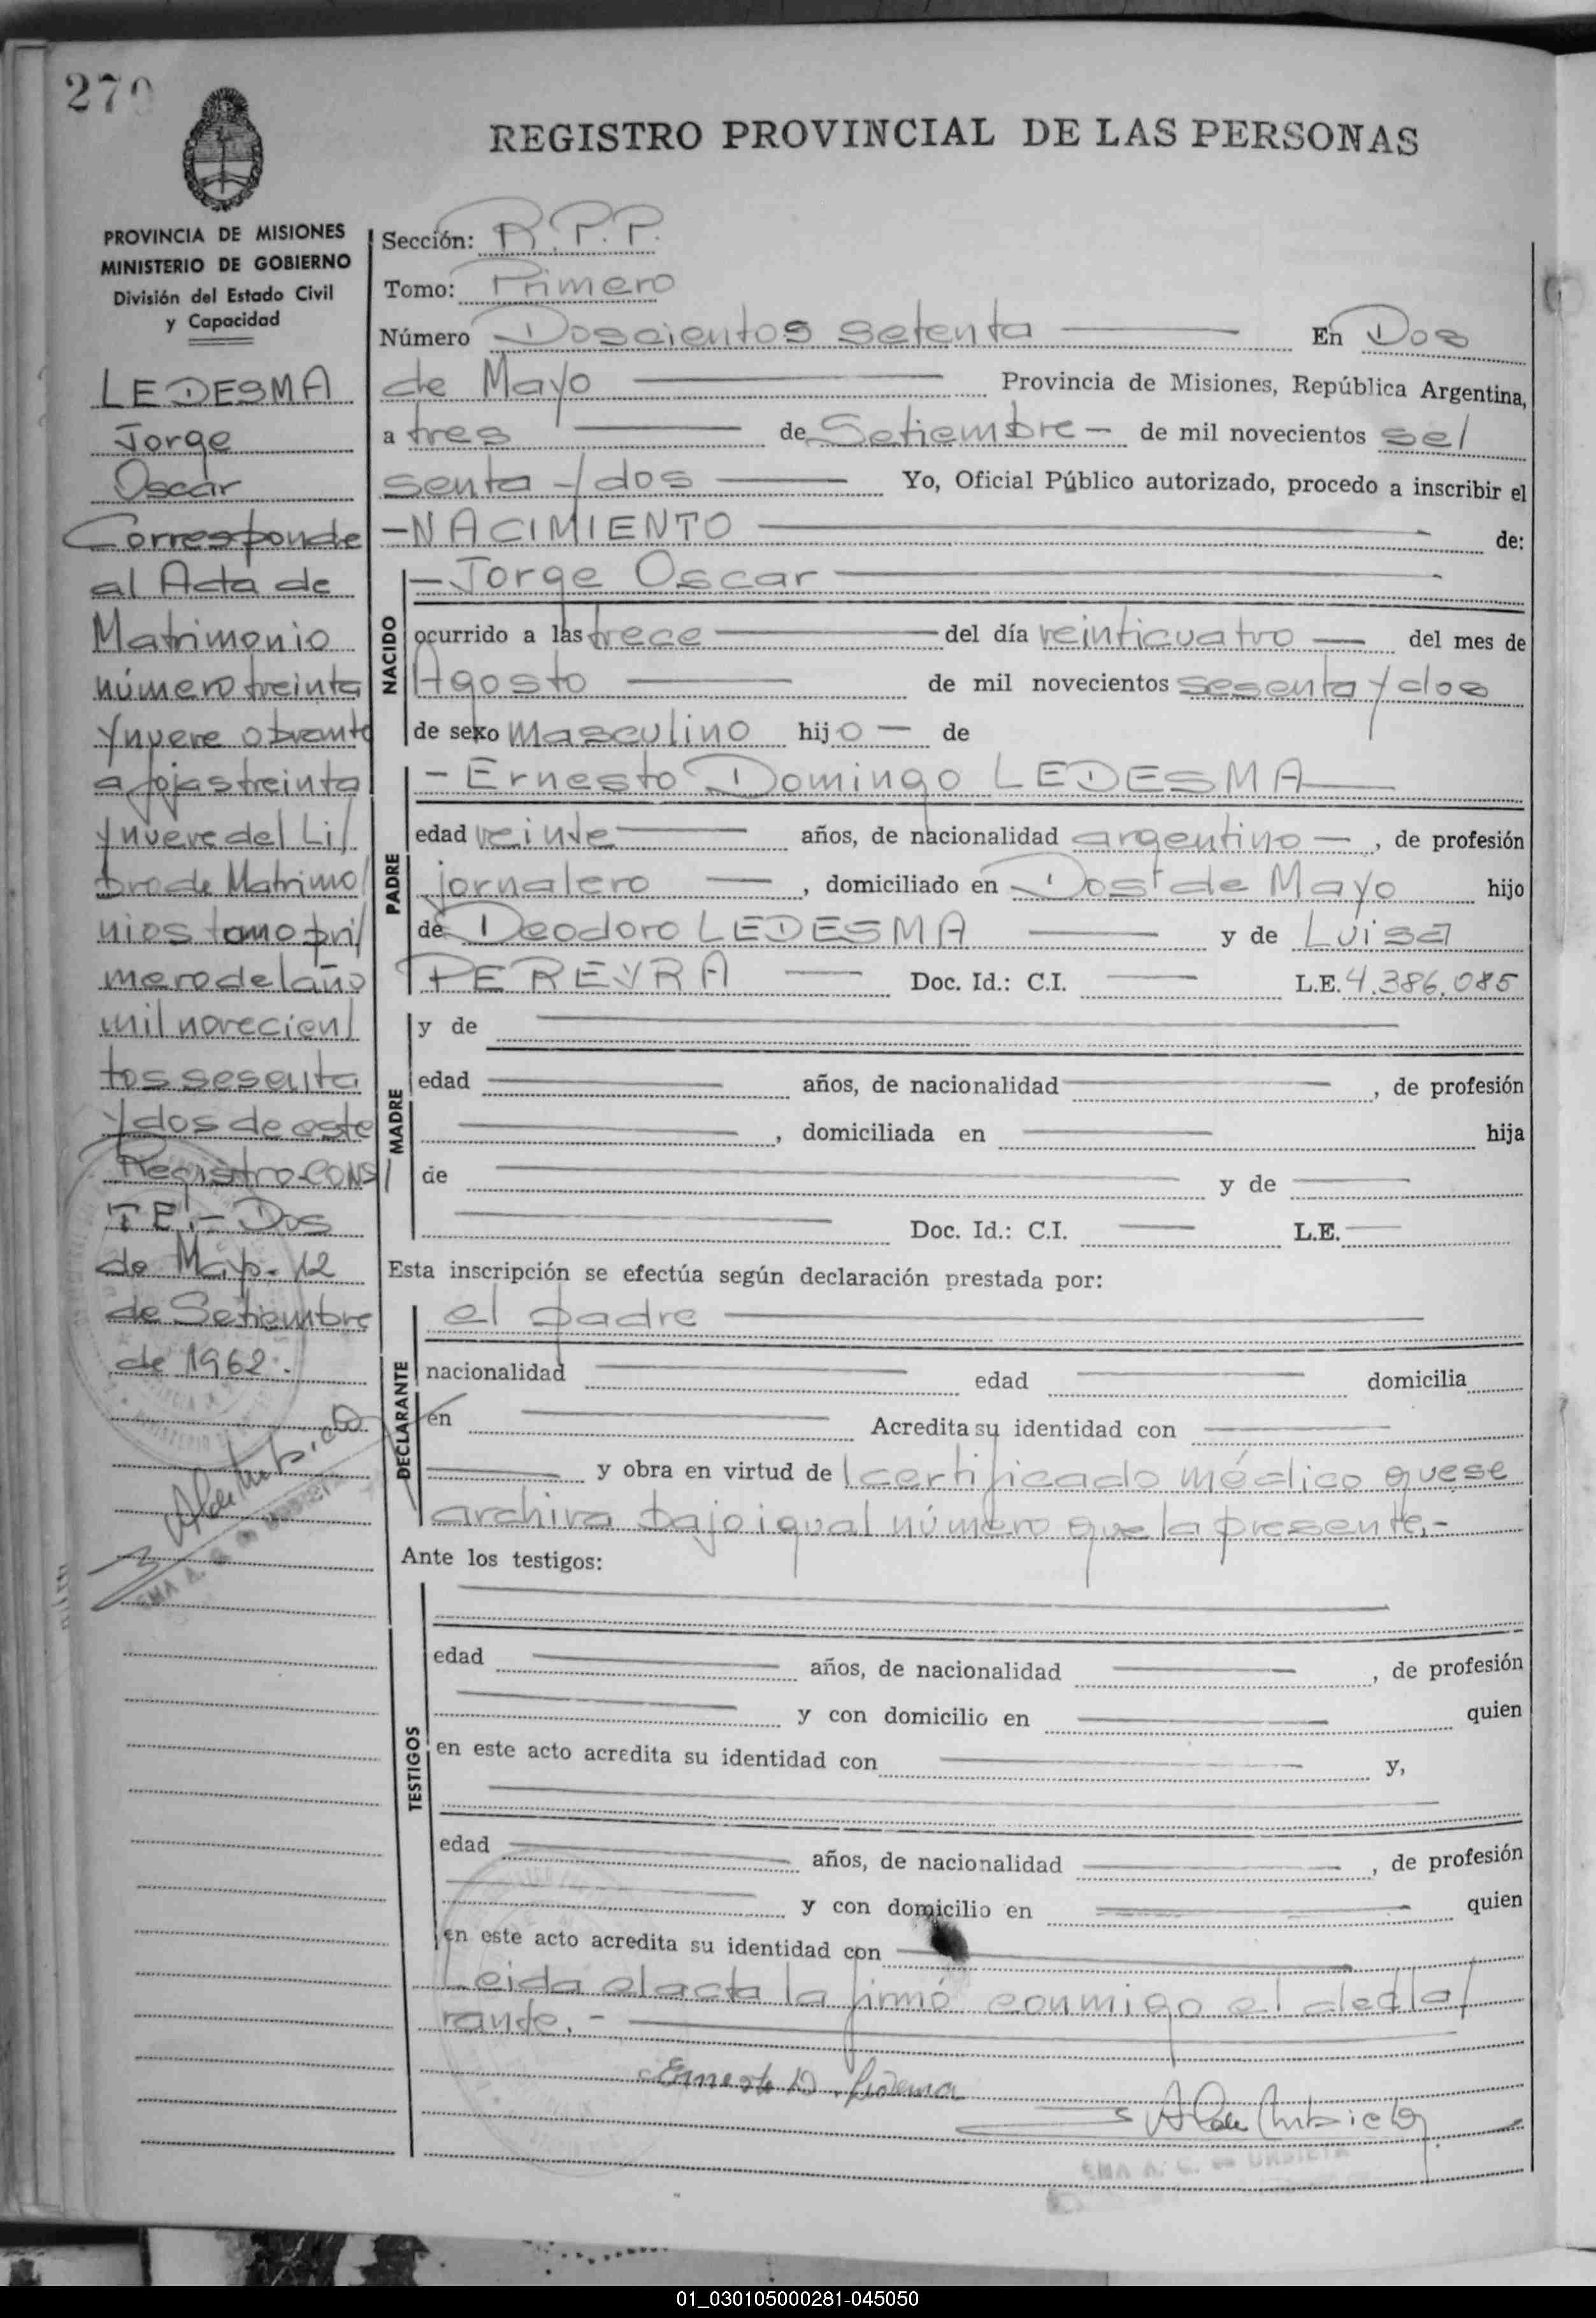 270
REGISTRO PROVINCIAL DE LAS PERSONAS
PROVINCIA DE MISIONES
MINISTERIO DE GOBIERNO
División del Estado Civil
y Capacidad
LEDESMA
Jorge
Oscar
Corresponde
al Acta de
Matrimonio
número treinta
y nueve obrante
a fojas treinta
y nueve del Li/
bro de Matrimo/
nios tomo pri/
mero del año
mil novecien/
tos sesenta
y dos de este
Registro-CONS/
TE.- Dos
de Mayo- 12
de Setiembre
de 1962.
Sección: R.P.P.
Tomo: Primero
Número Doscientos setenta En Dos
de Mayo Provincia de Misiones, República Argentina,
a tres de Setiembre - de mil novecientos se/
senta y dos Yo, Oficial Público autorizado, procedo a inscribir el
-NACIMIENTO de:
NACIDO
-Jorge Oscar
ocurrido a las trece del día veinticuatro del mes de
Agosto de mil novecientos sesenta y dos
de sexo masculino hijo - de
PADRE
- Ernesto Domingo LEDESMA
edad veinte años, de nacionalidad argentino -, de profesión
jornalero, domiciliado en Dos de Mayo hijo
de Deodoro LEDESMA y de Luisa
PEREYRA Doc. Id.: C.I. L.E. 4.386.085
MADRE
y de
edad años, de nacionalidad , de profesión
, domiciliada en hija
de y de
Doc. Id.: C.I. L.E.
Esta inscripción se efectúa según declaración prestada por:
DECLARANTE
el padre
nacionalidad edad domicilia
en Acredita su identidad con
y obra en virtud de certificado médico que se
archiva bajo igual número que la presente.-
Ante los testigos:
TESTIGOS
edad años, de nacionalidad , de profesión
y con domicilio en quien
en este acto acredita su identidad con y,
edad años, de nacionalidad , de profesión
y con domicilio en quien
en este acto acredita su identidad con
Leida el acta la firmó conmigo el decla/
rante.-
Ernesto D. Ledesma
01_030105000281-045050